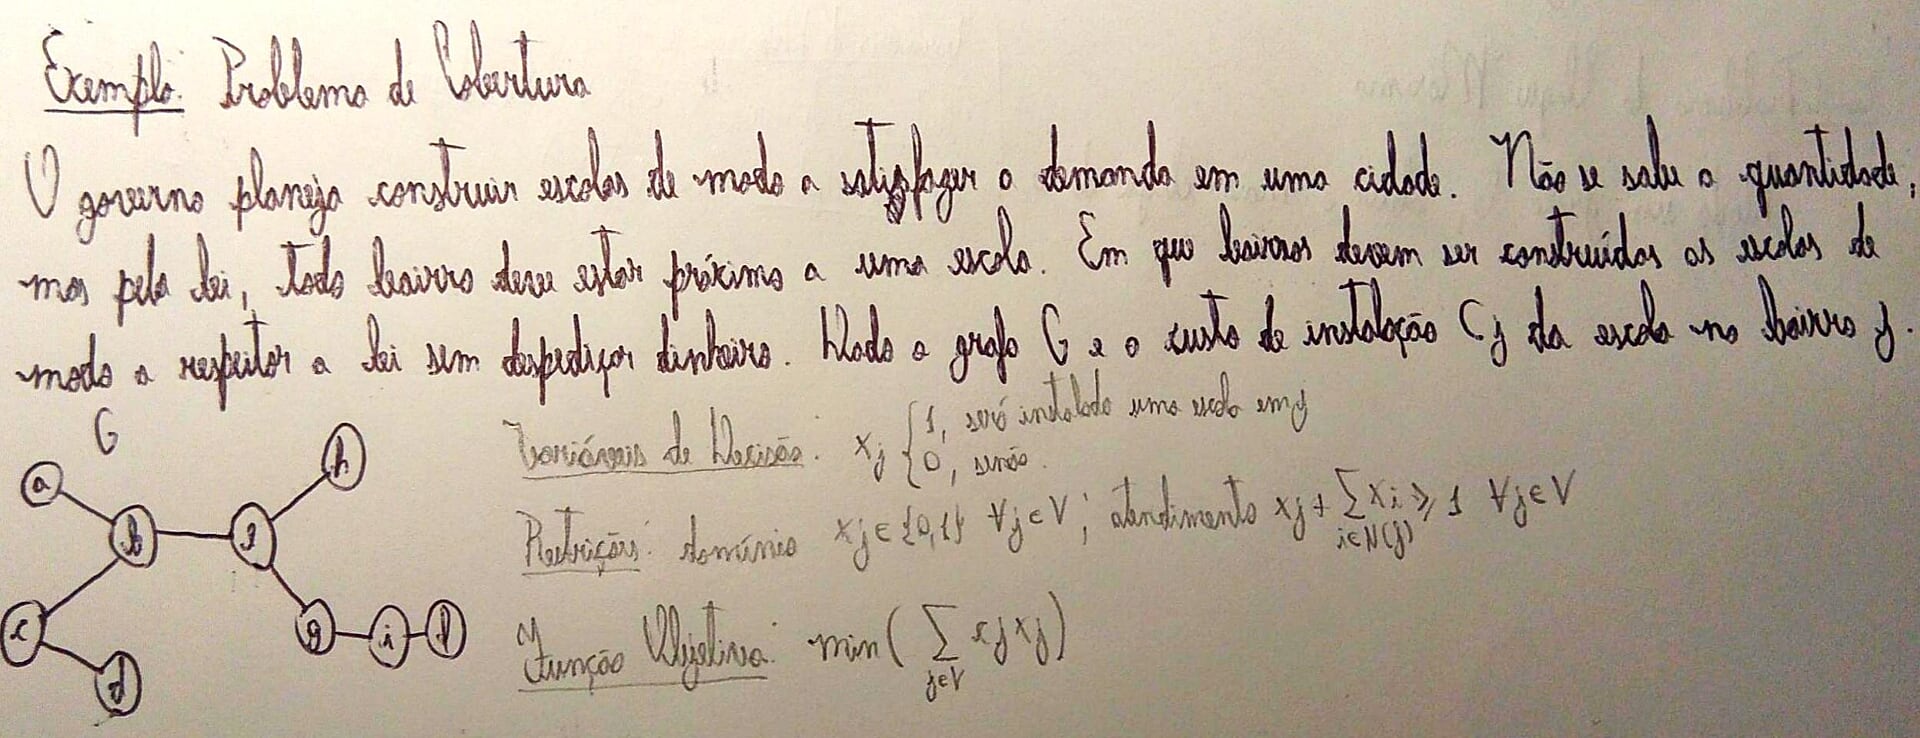 Exemplo: Problema de Cobertura
O governo planeja construir escolas de modo a satisfazer a demanda em uma cidade. Não se sabe a quantidade,
mas pela lei, todo bairro deve estar próximo a uma escola. Em que bairros devem ser construídas as escolas de
modo a respeitar a lei sem despediçar dinheiro. Dado o grafo G e o custo de instalação Cj da escola no bairro j.
G
Variáveis de Decisão: xj { 1, será instalada uma escola em j
0, senão.
Restrições: domínio xj ∈ {0,1} ∀j∈V; atendimento xj + ∑ i∈N(j) xi ≥ 1 ∀j∈V
Função Objetiva: min( ∑ j∈V cj xj )
a
h
b
c
g
i
d